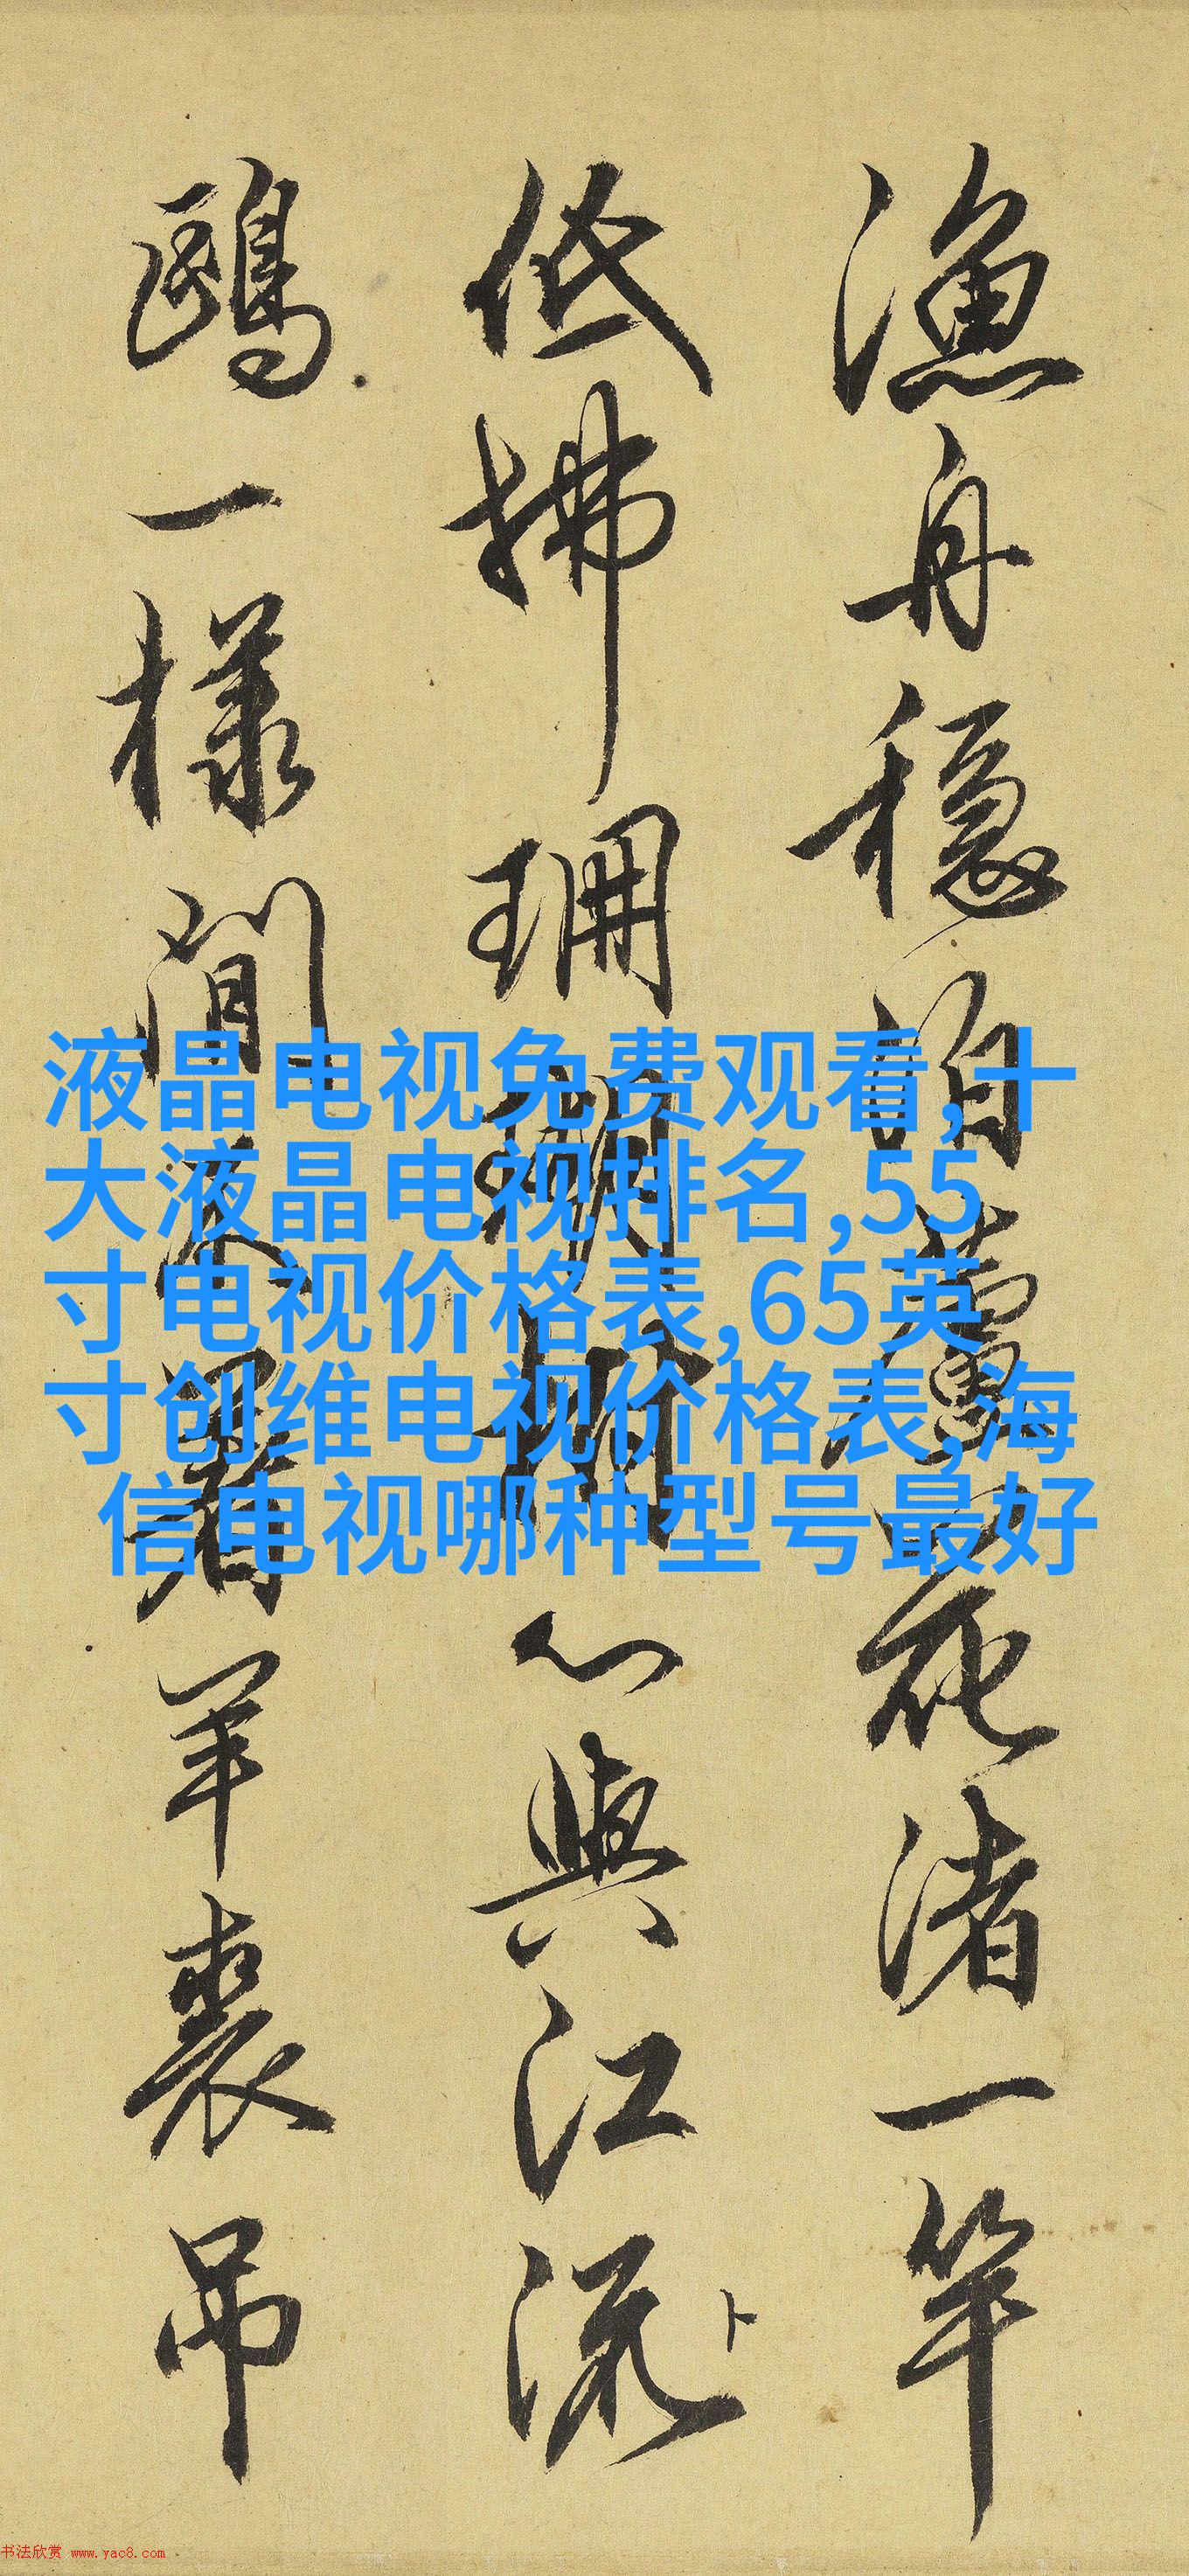 漁舟穩泊蘆花渚一竿
低拂珊瑚樹心與江流
鷗一樣閒來署羊裘吊
液晶电视免费观看,十
大液晶电视排名,55
寸电视价格表,65英
寸创维电视价格表,海
信电视哪种型号最好
卜
书法欣赏 www.yac8.com